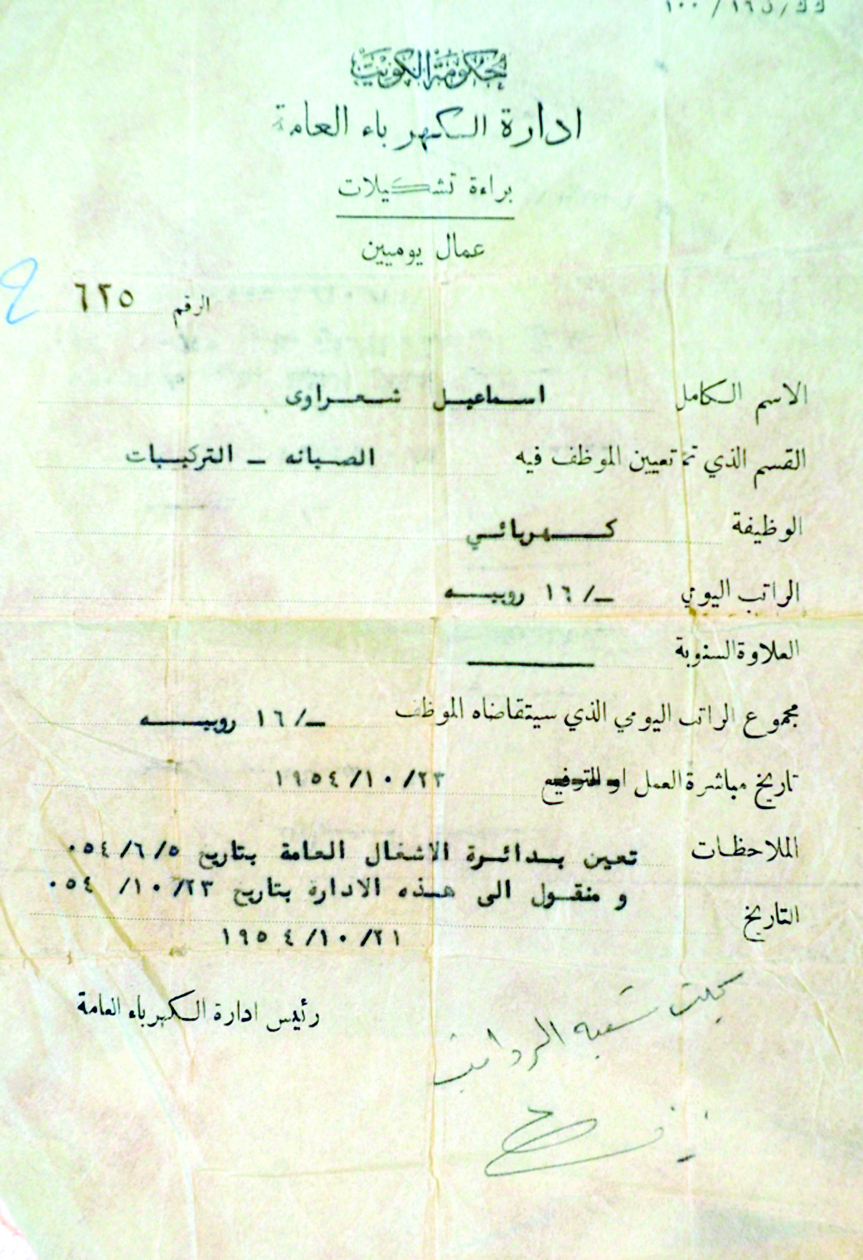 حكومة الكويت
ادارة الكهرباء العامة
براءة تشكيلات
عمال يوميين
الرقم ٦٢٥
الاسم الكامل اسماعيل شعراوى
القسم الذي تم تعيين الموظف فيه الصيانه – التركيبات
الوظيفة كهربائي
الراتب اليومي –/١٦ روبيه
العلاوة السنوية ——
مجموع الراتب اليومي الذي سيتقاضاه الموظف –/١٦ روبيه
تاريخ مباشرة العمل او الترفيع ١٩٥٤/١٠/٢٣
الملاحظات تعين بدائرة الاشغال العامة بتاريخ ٥/٦/٠٥٤
و منقول الى هذه الادارة بتاريخ ٢٣/١٠/٠٥٤
التاريخ ١٩٥٤/١٠/٢١
رئيس ادارة الكهرباء العامة
سجلت شعبه الرواتب